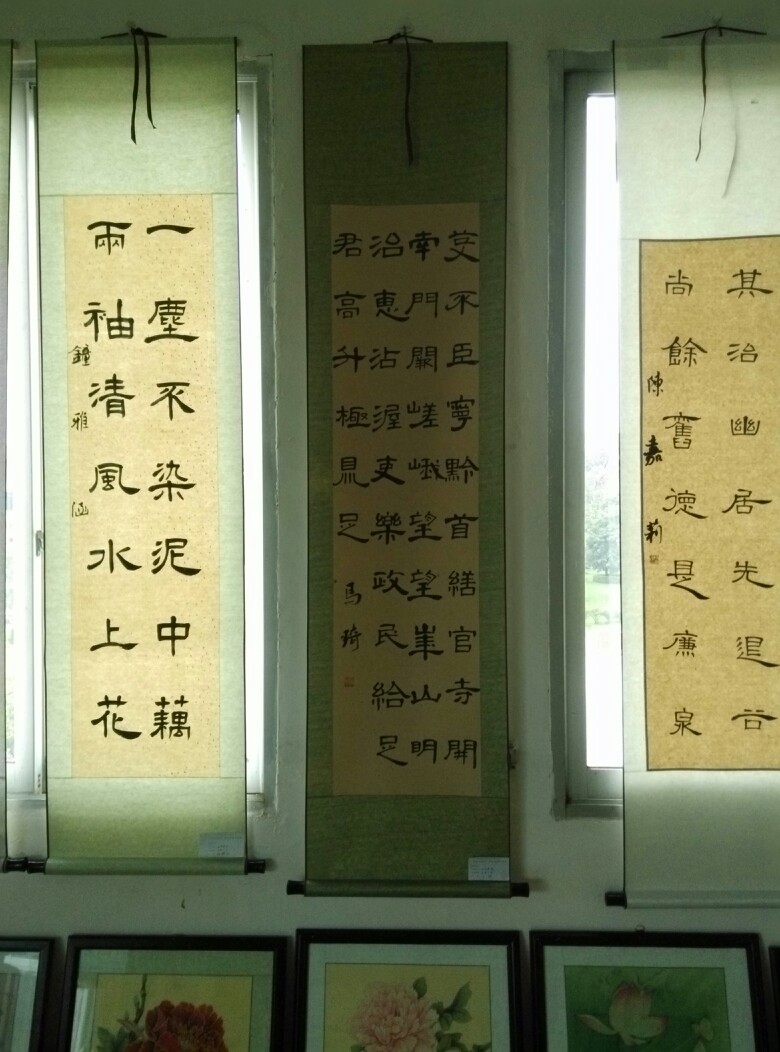 一塵不染泥中藕
兩袖清風水上花
鐘雅涵
芟不臣寧黔首繕官寺開
南門闕嵯峨望望崋山明
治惠沾渥吏樂政民給足
君高升極鼎足
馬琦
其治幽居先退谷
尚餘舊德是廉泉
陳嘉莉